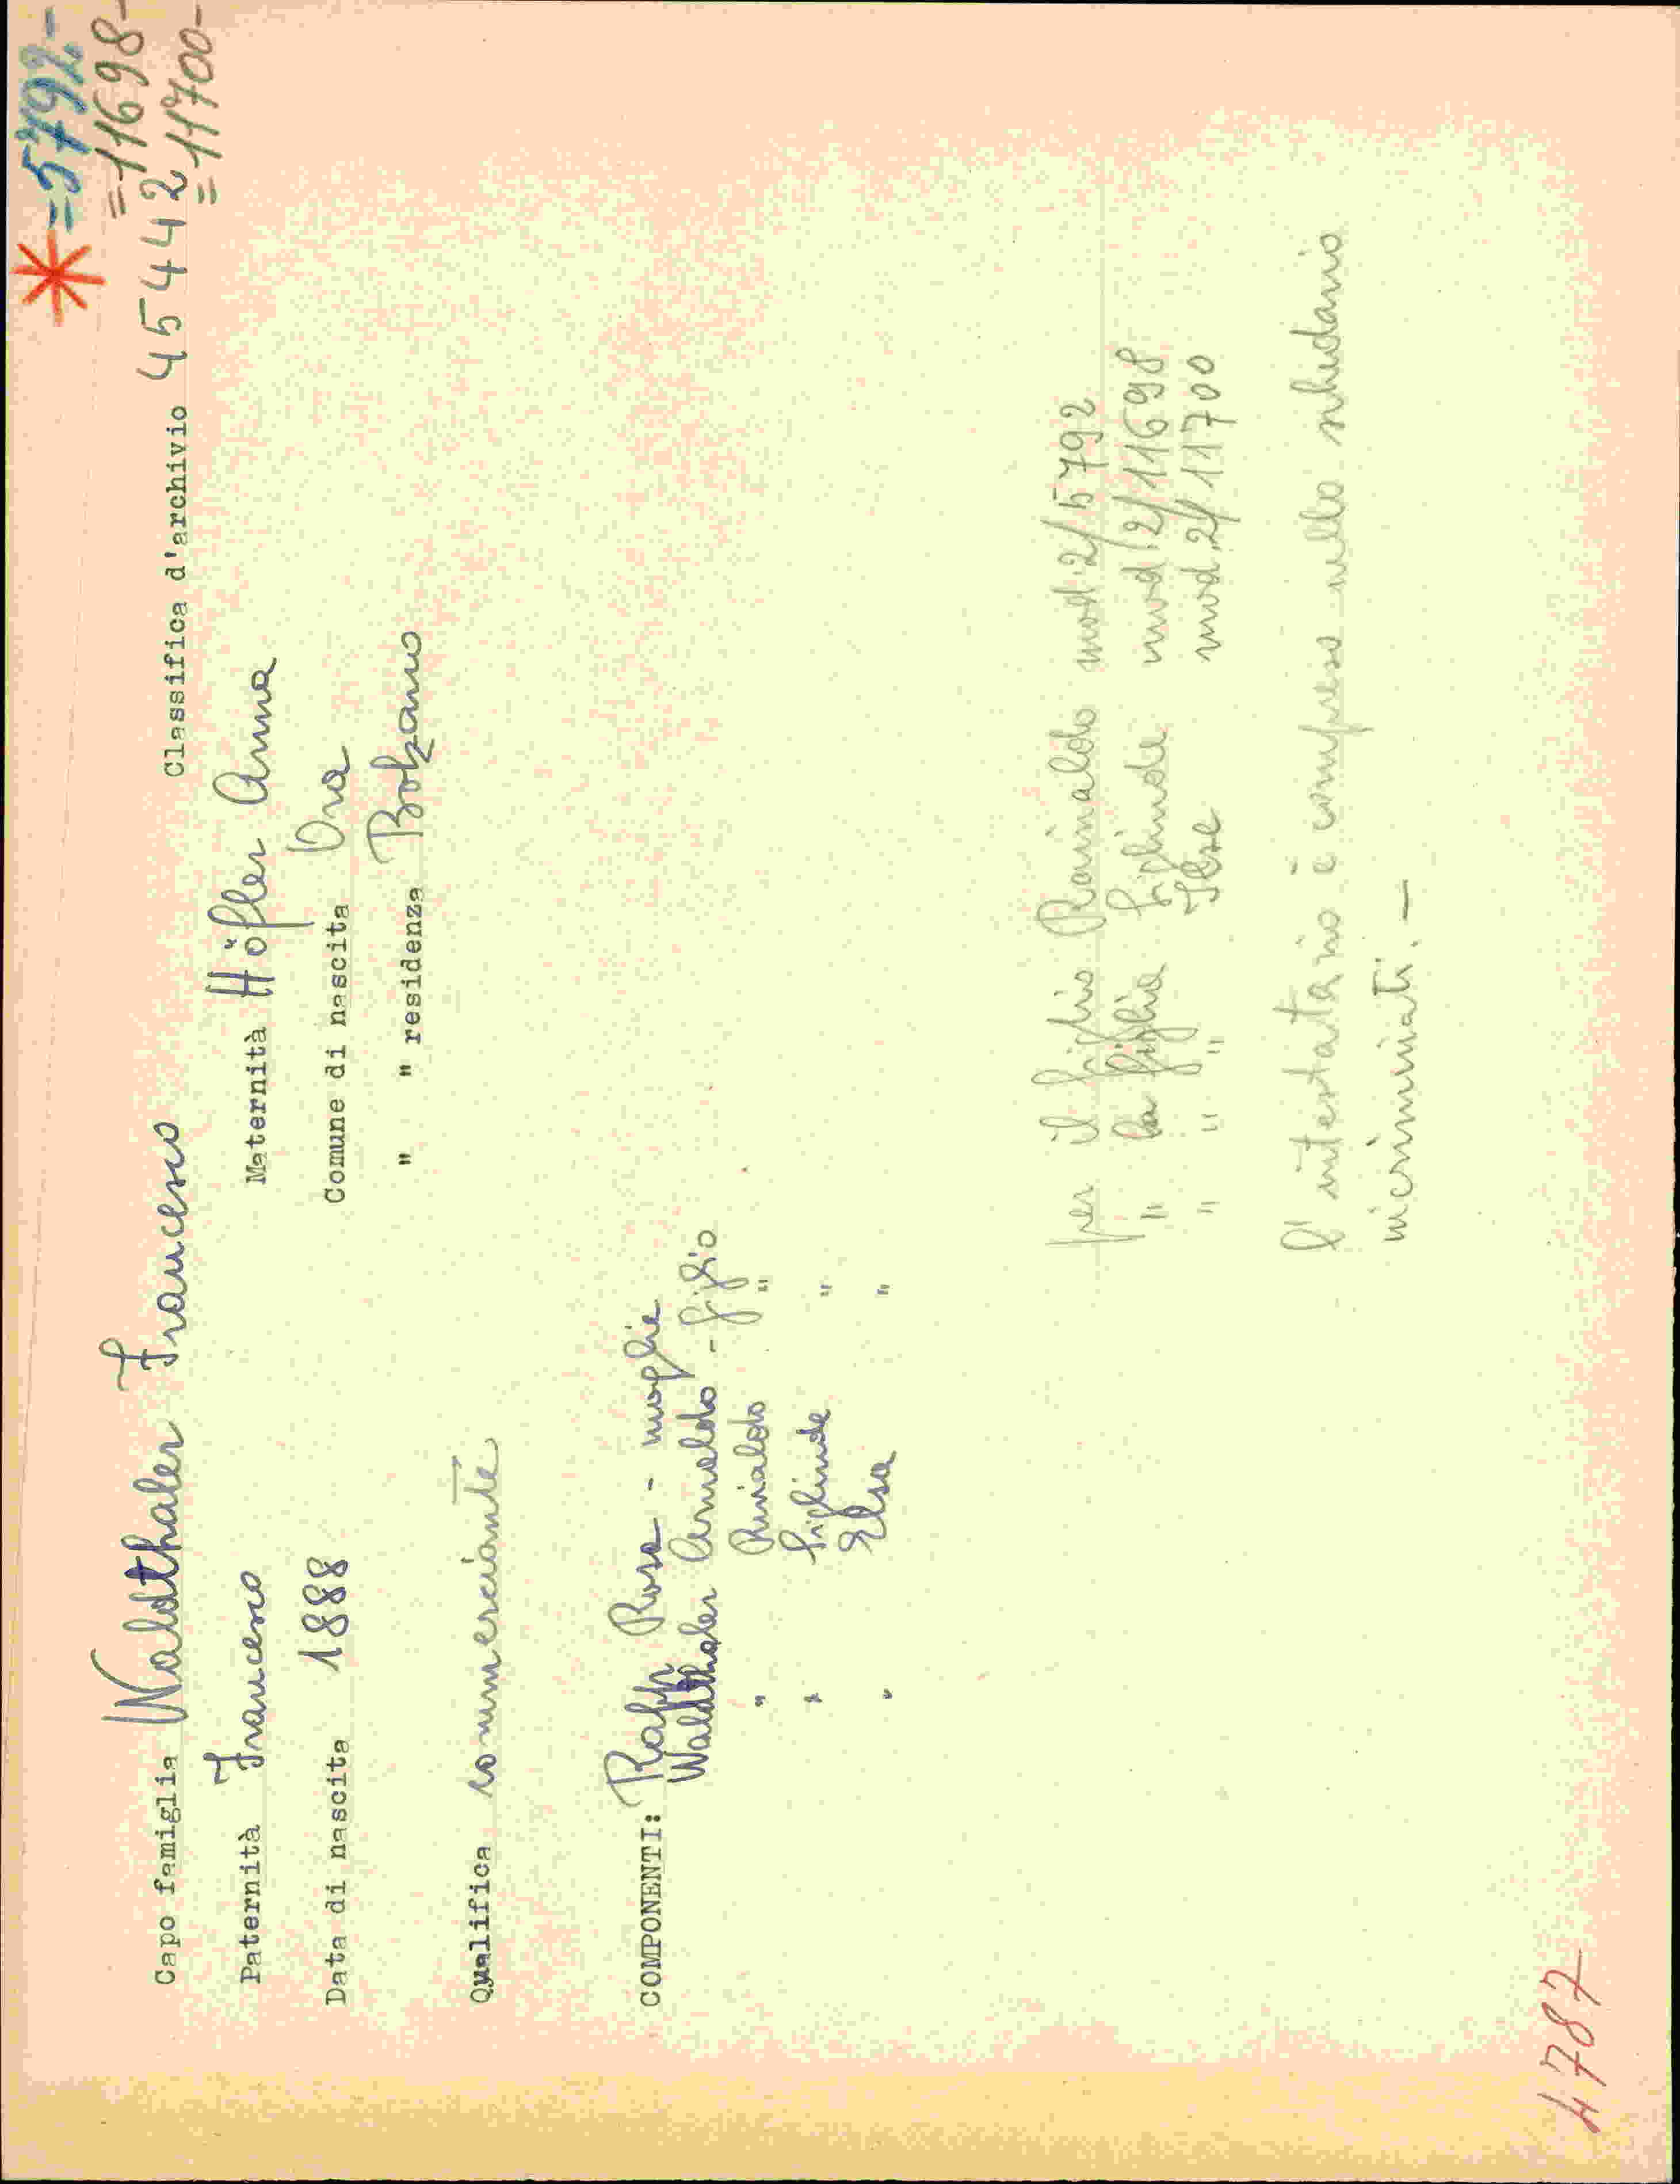 * =5792-
=11698-
Capo famiglia Waldthaler Francesco Classifica d'archivio 45442
=11700-
Paternità Francesco Maternità Höffler Anna
Data di nascita 1888 Comune di nascita Ora
" " residenza Bolzano
Qualifica commerciante
COMPONENTI: Rapp Rosa - moglie
Waldthaler Arnoldo - figlio
" Rinialdo "
" Siglinde "
" Elsa "
per il figlio Rainaldo mod. 2/5792
" la figlia Siglinde mod. 2/11698
" " " Ilse mod. 2/11700
l'intestatario è compreso nello schedario
incriminati. —
4787